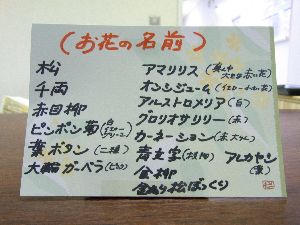 (お花の名前)
松
千両
赤目柳
ピンポン菊(白 イエロー グリーン)
葉ボタン(二種)
大輪ガーベラ(ピンク)
アマリリス(真ん中 大きな赤の花)
オンシジューム(イエロー小さい花)
アルストロメリア(白)
グロリオサリリー(赤)
カーネーション(赤大りん)
青文字(枝物) アレカヤシ(葉)
金柳
金ぬり松ぼっくり